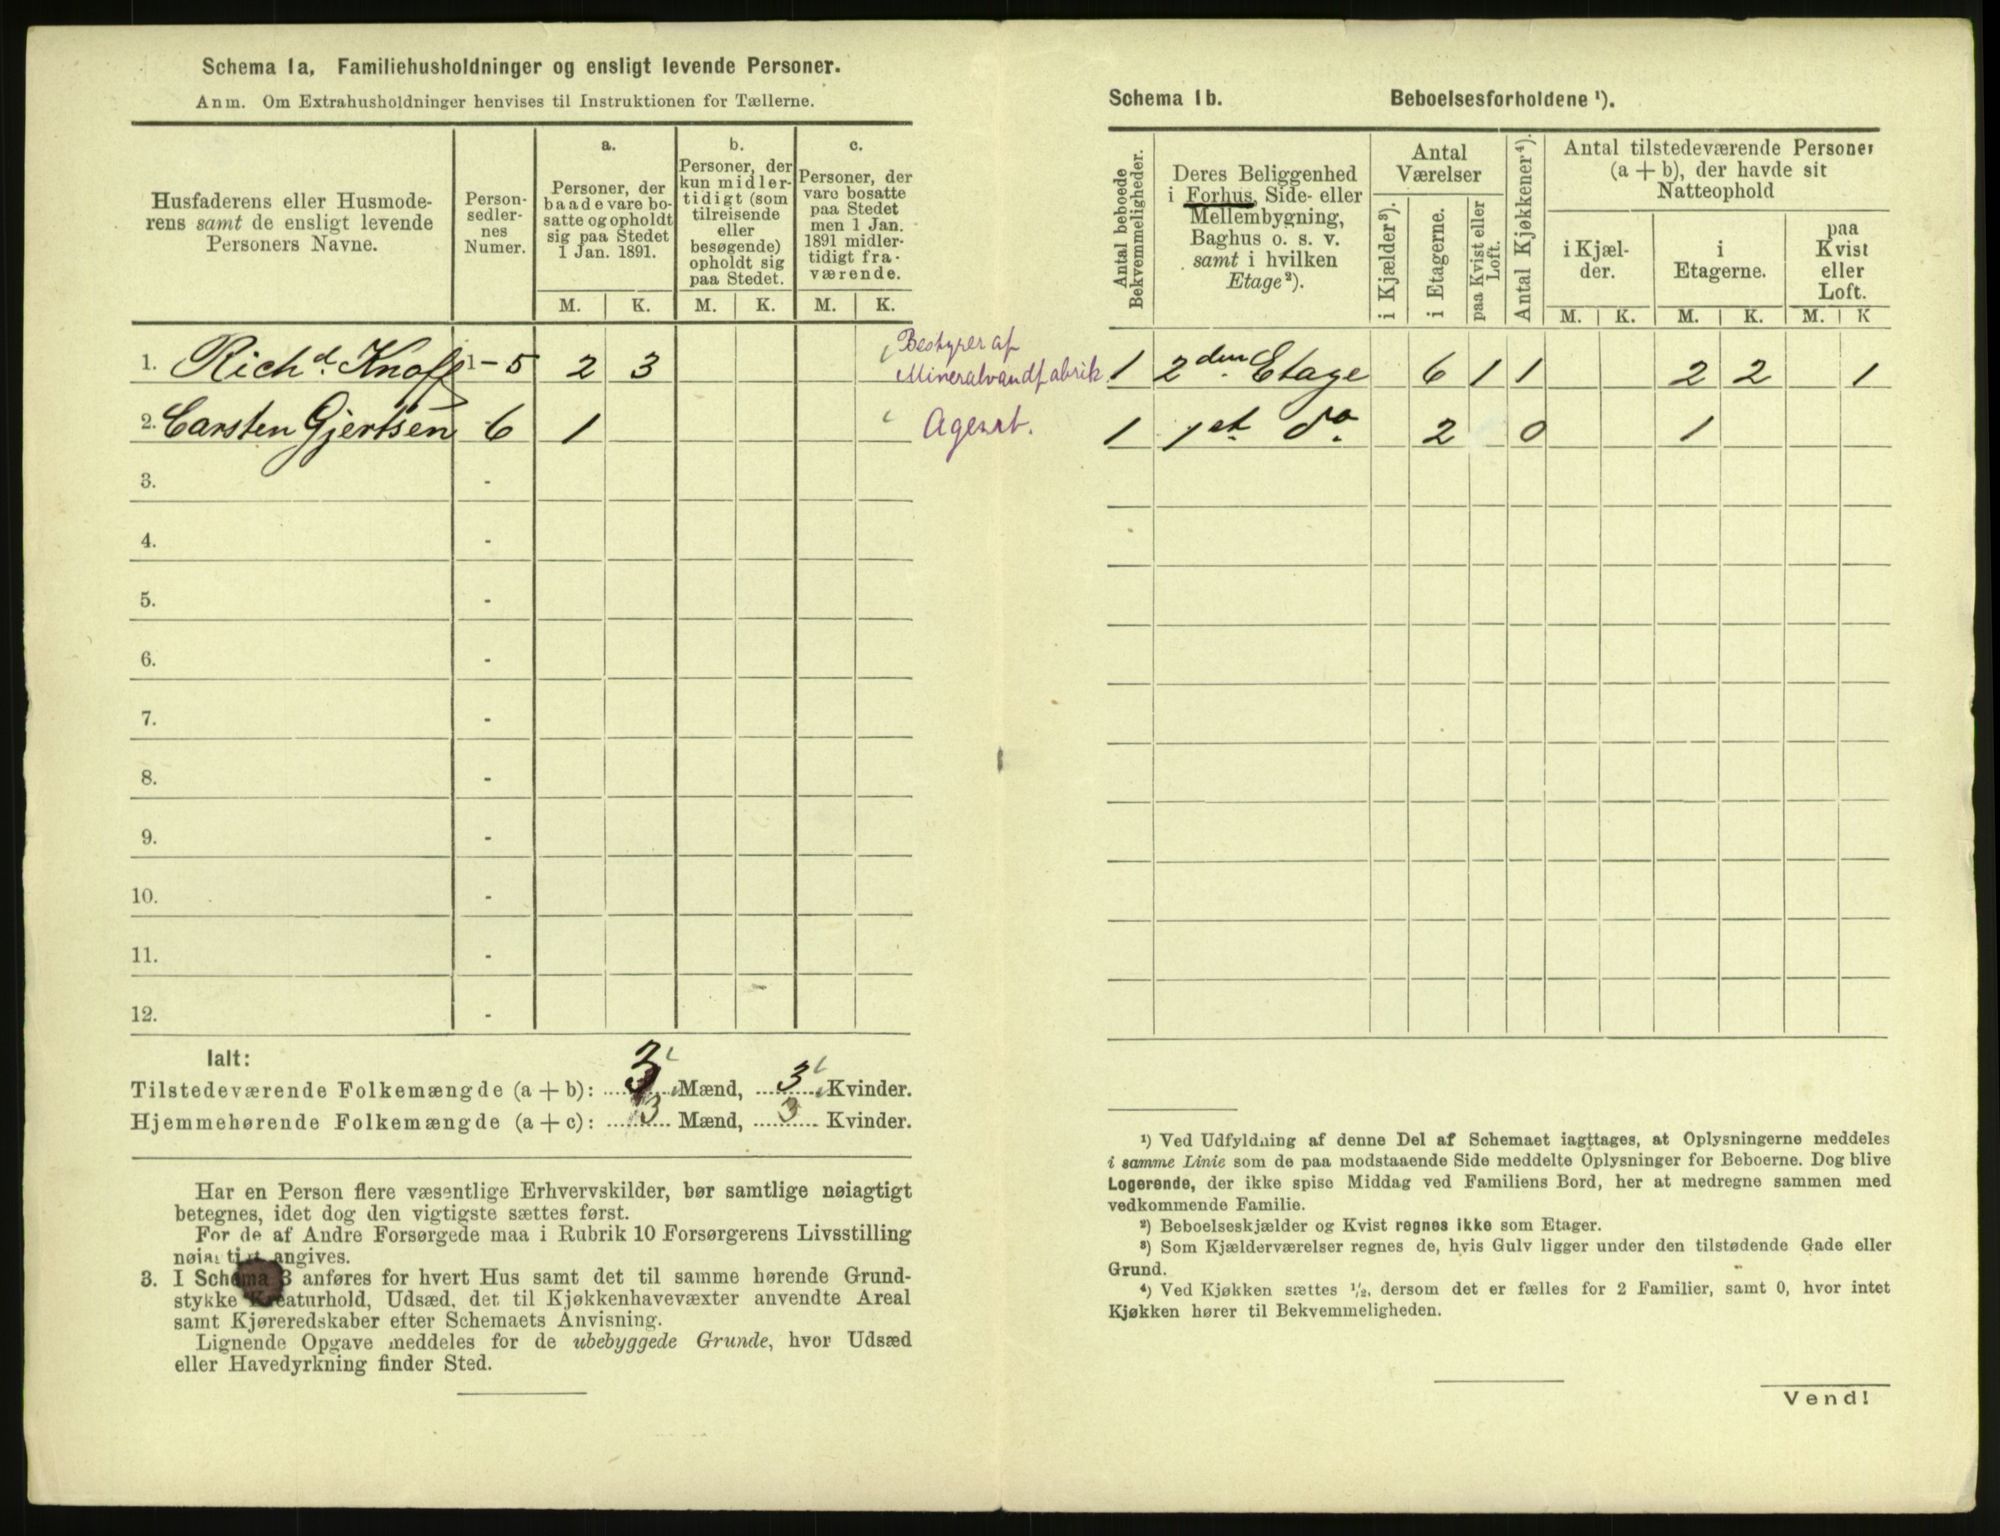 Schema 1a, Familiehusholdninger og ensligt levende Personer.
Anm. Om Extrahusholdninger henvises til Instruktionen for Tællerne.
Husfaderens eller Husmode-
rens samt de ensligt levende
Personers Navne.
Person-
sedler-
nes
Numer.
a.
Personer, der
baade vare bo-
satte og opholdt
sig paa Stedet
1 Jan. 1891.
b.
Personer, der
kun midler-
tidigt (som
tilreisende
eller
besøgende)
opholdt sig
paa Stedet.
c.
Personer, der
vare bosatte
paa Stedet
men 1 Jan.
1891 midler-
tidigt fra-
værende.
M. K. M. K. M. K.
1. Rich.d Knoff 1-5 2 3 Bestyrer af
Mineralvandfabrik
2. Carsten Gjertsen 6 1 Agent.
3. -
4. -
5. -
6. -
7. -
8. -
9. -
10. -
11. -
12. -
Ialt:
Tilstedeværende Folkemængde (a + b): 3 Mænd, 3 Kvinder.
Hjemmehørende Folkemængde (a + c): 3 Mænd, 3 Kvinder.
Har en Person flere væsentlige Erhvervskilder, bør samtlige nøiagtigt
betegnes, idet dog den vigtigste sættes først.
For de af Andre Forsørgede maa i Rubrik 10 Forsørgerens Livsstilling
nøiagtigt angives.
3. I Schema 3 anføres for hvert Hus samt det til samme hørende Grund-
stykke Kreaturhold, Udsæd, det til Kjøkkenhavevæxter anvendte Areal
samt Kjøreredskaber efter Schemaets Anvisning.
Lignende Opgave meddeles for de ubebyggede Grunde, hvor Udsæd
eller Havedyrkning finder Sted.
Schema 1b. Beboelsesforholdene ¹).
Antal beboede
Bekvemmeligheder.
Deres Beliggenhed
i Forhus, Side- eller
Mellembygning,
Baghus o. s. v.
samt i hvilken
Etage²).
Antal
Værelser
i Kjælder³).
i Etagerne.
paa Kvist eller
Loft.
Antal Kjøkkener⁴).
Antal tilstedeværende Personer
(a + b), der havde sit
Natteophold
i Kjæl-
der.
i
Etagerne.
paa
Kvist
eller
Loft.
M. K. M. K. M. K
1 2den Etage 6 1 1 2 2 1
1 1st do 2 0 1
¹) Ved Udfyldning af denne Del af Schemaet iagttages, at Oplysningerne meddeles
i samme Linie som de paa modstaaende Side meddelte Oplysninger for Beboerne. Dog blive
Logerende, der ikke spise Middag ved Familiens Bord, her at medregne sammen med
vedkommende Familie.
²) Beboelseskjælder og Kvist regnes ikke som Etager.
³) Som Kjælderværelser regnes de, hvis Gulv ligger under den tilstødende Gade eller
Grund.
⁴) Ved Kjøkken sættes ½, dersom det er fælles for 2 Familier, samt 0, hvor intet
Kjøkken hører til Bekvemmeligheden.
Vend!